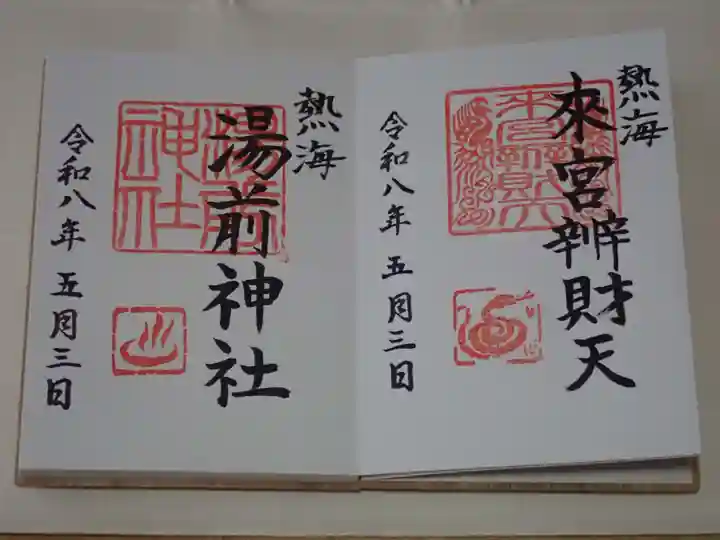 熱海
來宮辨財天
令和八年 五月三日
熱海
湯前神社
湯前
神社
令和八年 五月三日